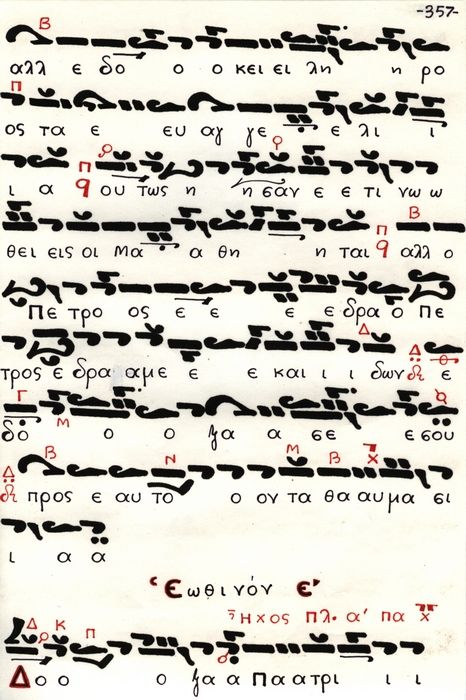 -357-
αλλ ε δο ο ο κει ει λη η ρο
ος τα ε ευ αγ γε ε λι ι
ι α ου τως η η σαν ε ε τι νω ω
θει εις οι μα α θη η ται αλλ ο
Πε τρο ος ε ε ε ε δρα ο Πε
τρος ε δρα αμε ε ε και ι ι δων ε
δο ο ο ξα α σε ε σου
προς ε αυ το ο ον τα θα αυ μα σι
ι α α
Εωθινόν Ε'
Ηχος πλ. α' πα
Δο ο ο ξα α Πα α τρι ι ι